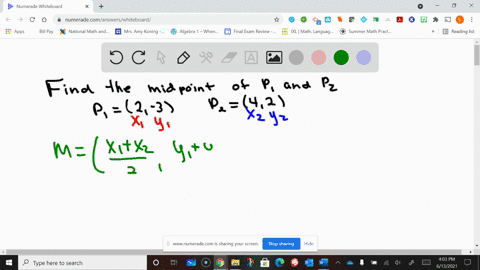 Numerade Whiteboard
numerade.com/answers/whiteboard/
Apps
Bill Pay
National Math and...
Mrs. Amy Koning -...
Algebra 1 - Whem...
Final Exam Review -...
Math, Languag...
Summer Math Prac...
Reading list
Find the midpoint of P₁ and P₂
P₁ = (2, -3) P₂ = (4, 2)
x₁ y₁ x₂ y₂
M = ( x₁+x₂ / 2 , y₁+
www.numerade.com is sharing your screen. Stop sharing Hide
Type here to search
4:03 PM
6/13/2021